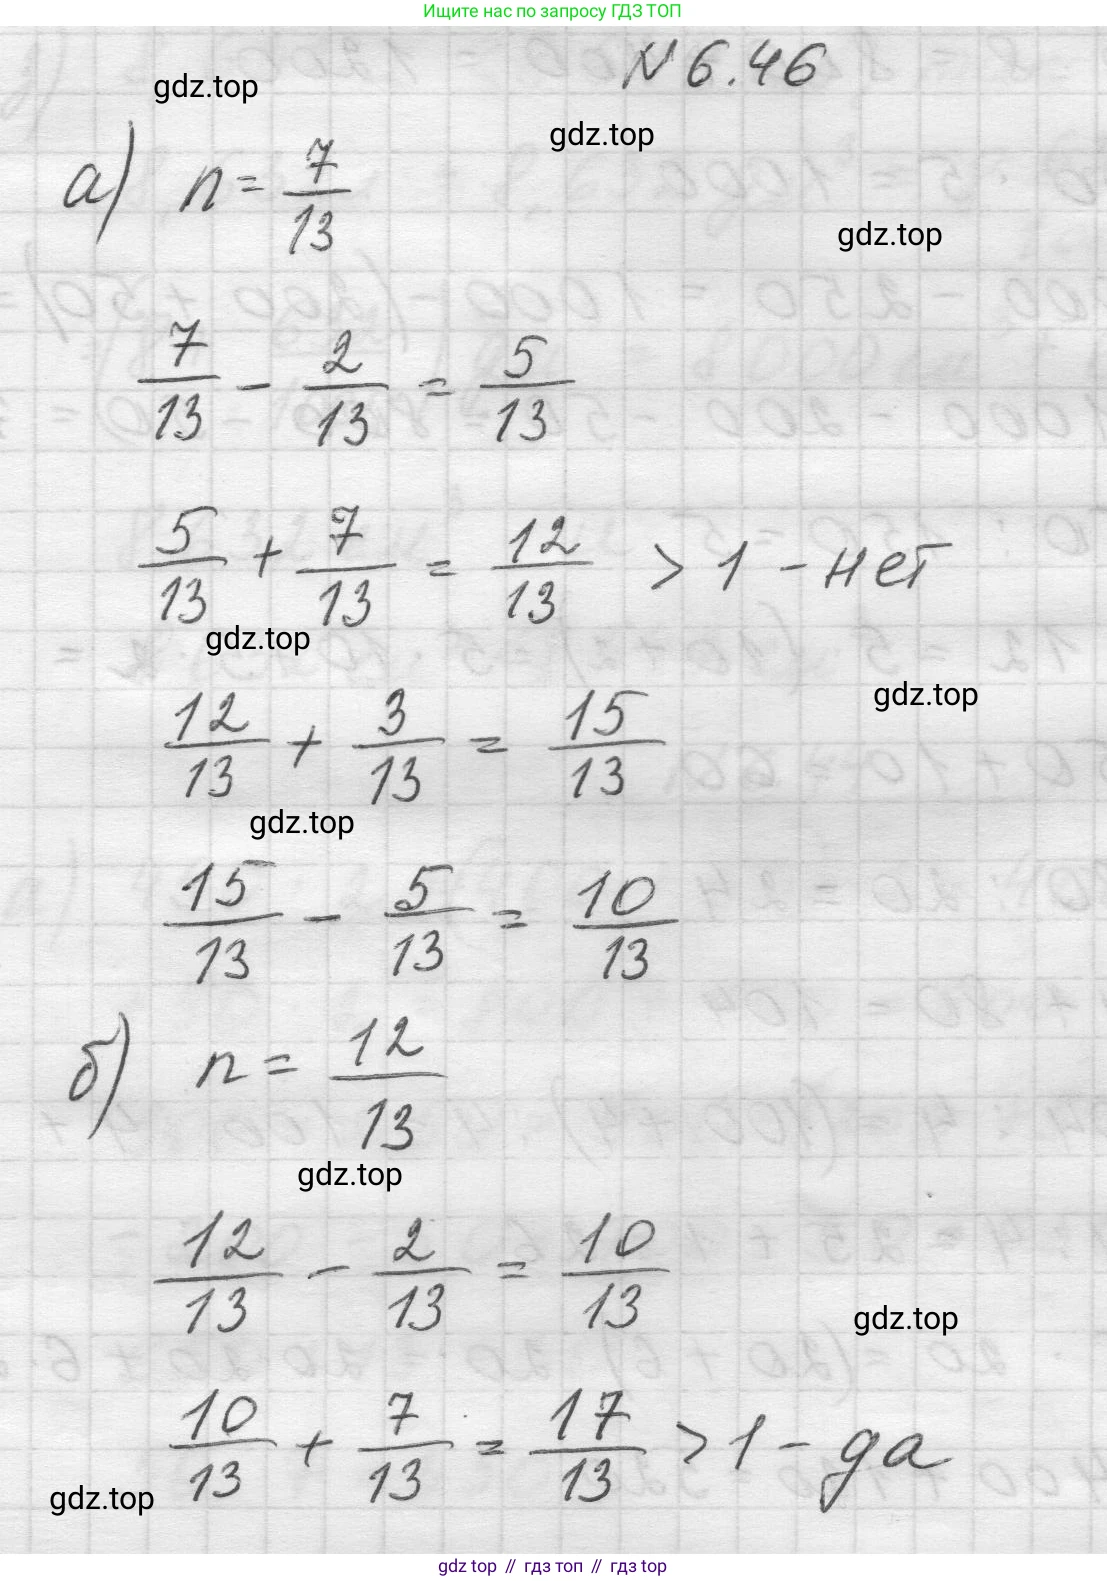 Ищите нас по запросу ГДЗ ТОП
N 6.46
gdz.top
gdz.top
а) n = 7/13
gdz.top
7/13 - 2/13 = 5/13
5/13 + 7/13 = 12/13 > 1 - нет
gdz.top
gdz.top
12/13 + 3/13 = 15/13
gdz.top
15/13 - 5/13 = 10/13
б) n = 12/13
gdz.top
12/13 - 2/13 = 10/13
gdz.top
10/13 + 7/13 = 17/13 > 1 - да
gdz.top
gdz top // гдз топ // гдз top